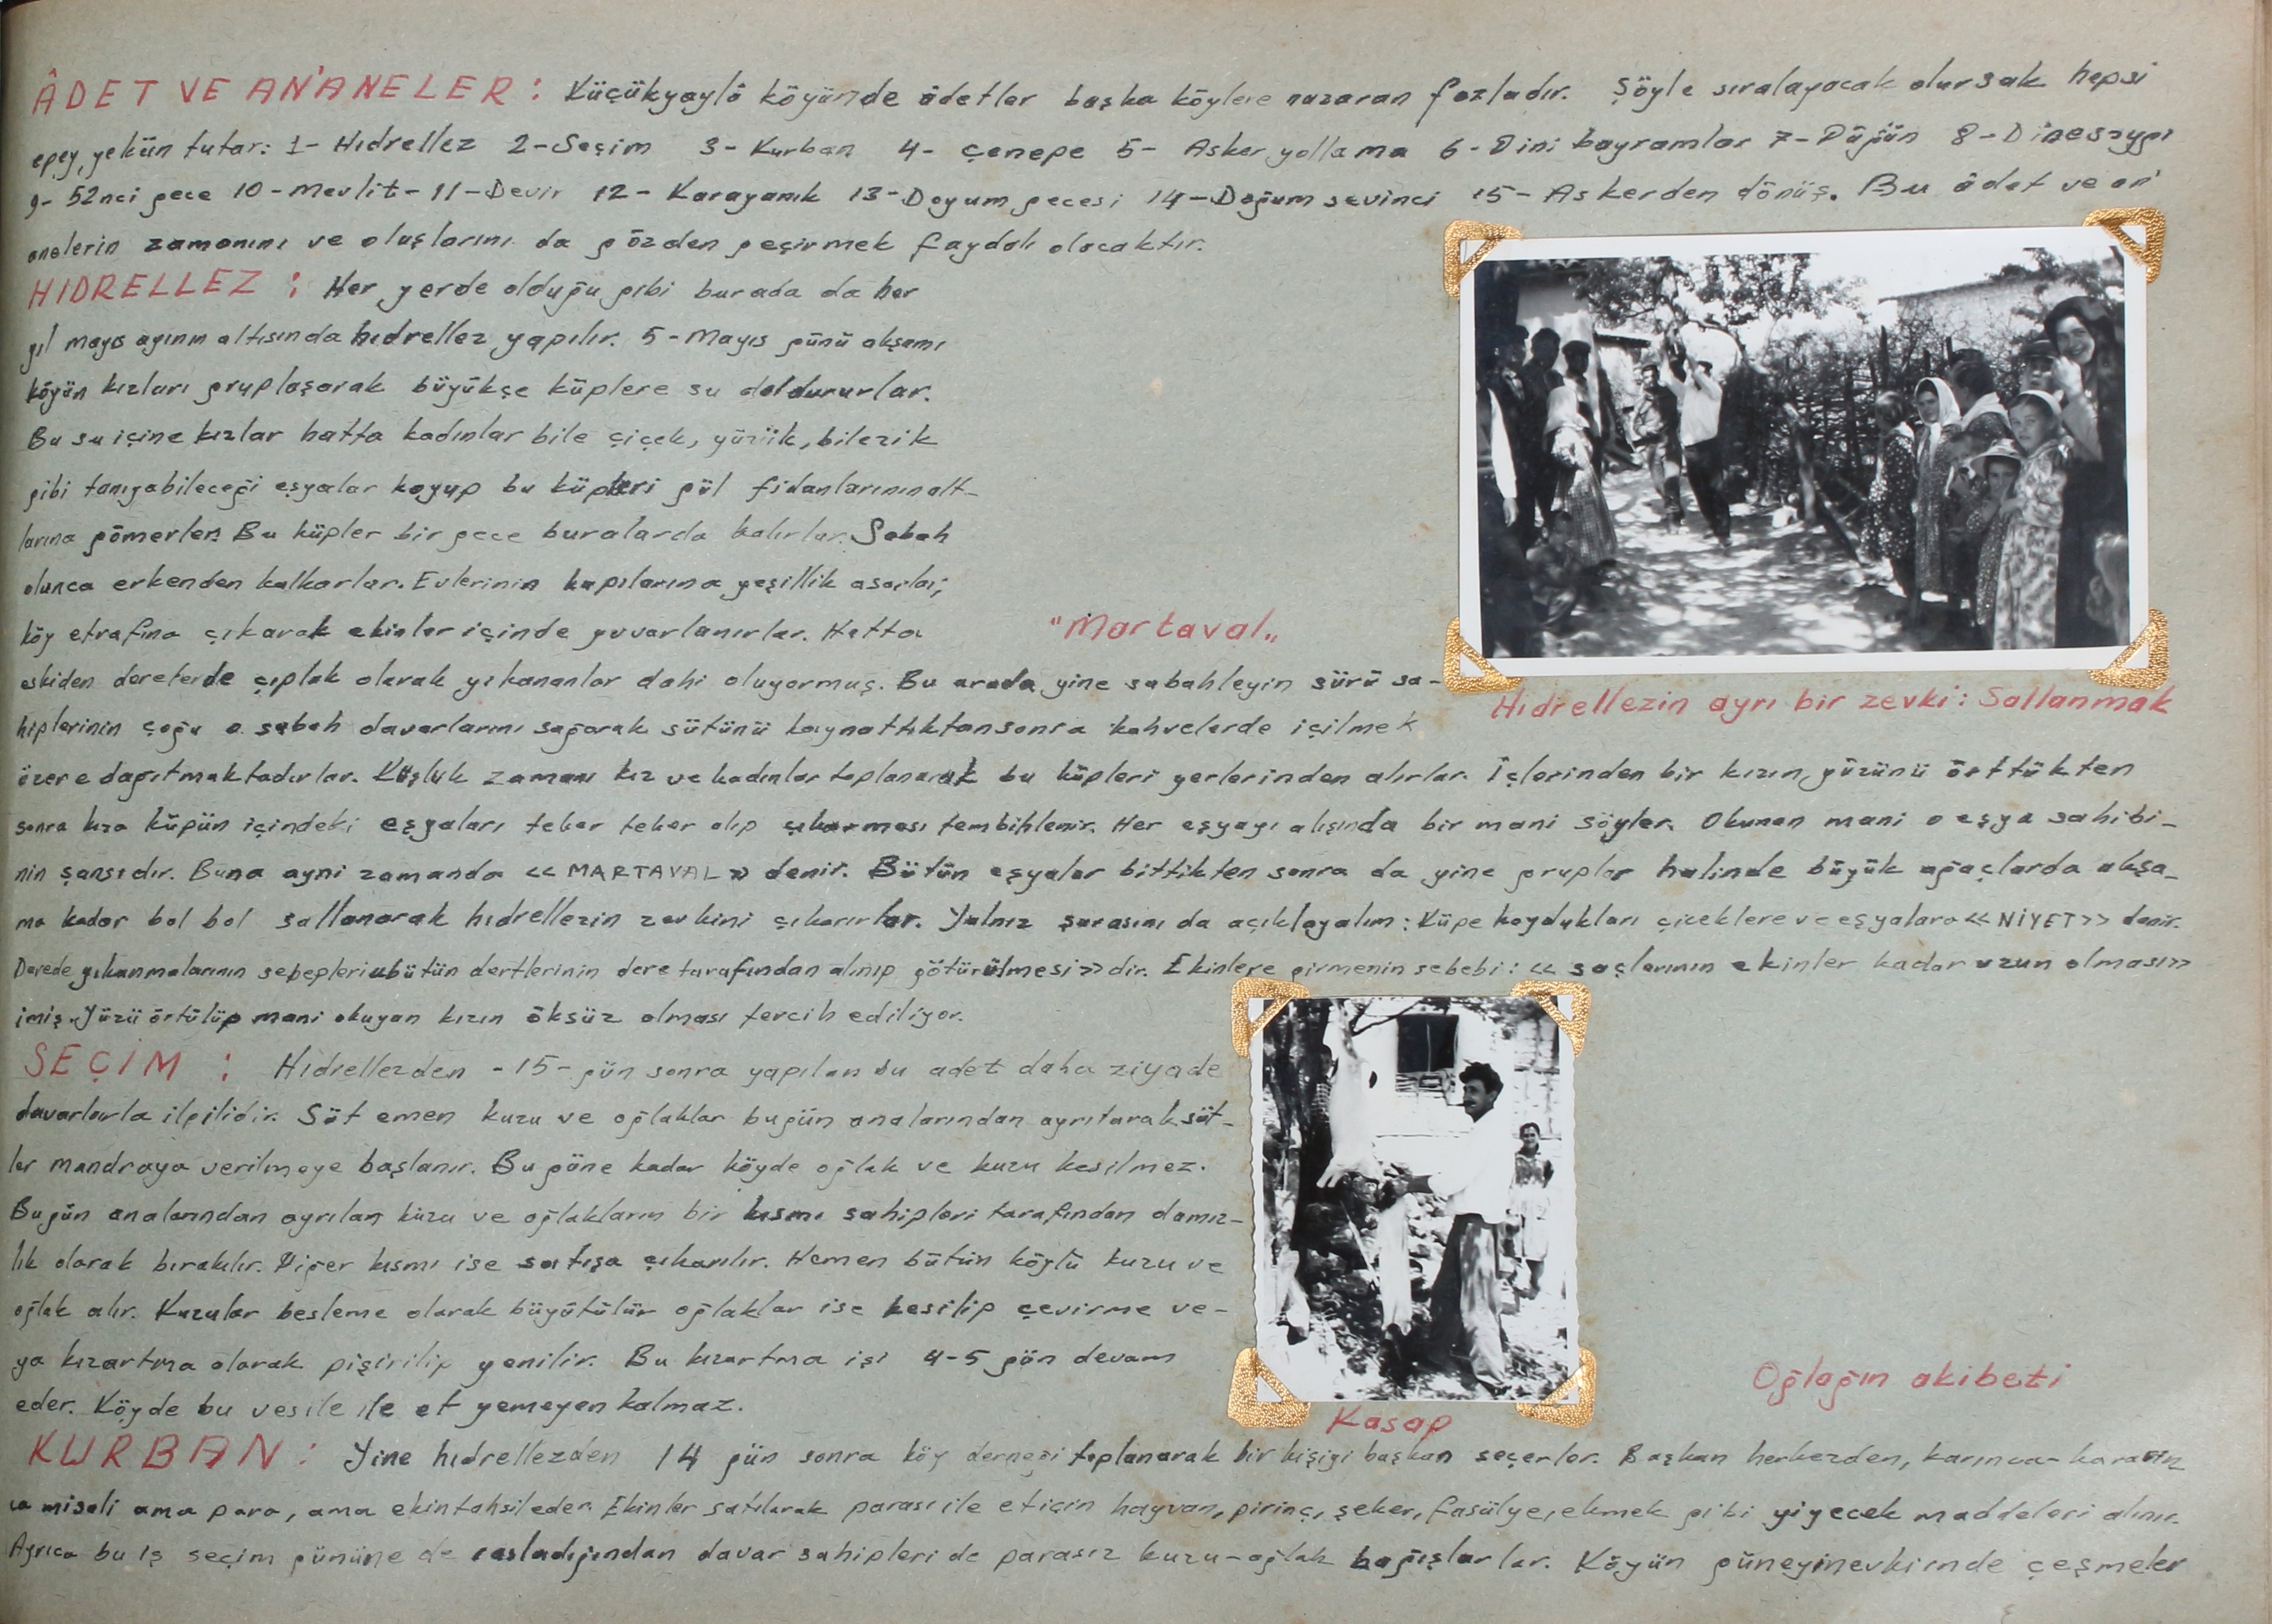 ÂDET VE AN'ANELER : Küçükyaylâ köyünde âdetler başka köylere nazaran fazladır. Şöyle sıralayacak olursak hepsi
epey yekün tutar: 1- Hıdrellez 2- Seçim 3- Kurban 4- Çenepe 5- Asker yollama 6- Dini bayramlar 7- Düğün 8- Dinesaygı
9- 52nci gece 10- Mevlit- 11- Devir 12- Karayanık 13- Doyum gecesi 14- Doğum sevinci 15- Askerden dönüş. Bu âdet ve an'
anelerin zamanını ve oluşlarını da gözden geçirmek faydalı olacaktır.
HIDRELLEZ : Her yerde olduğu gibi burada da her
yıl mayıs ayının altısında hıdrellez yapılır. 5-Mayıs günü akşamı
köyün kızları gruplaşarak büyükçe küplere su doldururlar.
Bu su içine kızlar hatta kadınlar bile çiçek, yüzük, bilezik
gibi tanıyabileceği eşyalar koyup bu küpleri gül fidanlarının alt-
larına gömerler. Bu küpler bir gece buralarda kalırlar. Sabah
olunca erkenden kalkarlar. Evlerinin kapılarına yeşillik asarlar;
köy etrafına çıkarak ekinler içinde yuvarlanırlar. Hatta
"Martaval„
eskiden derelerde çıplak olarak yıkananlar dahi oluyormuş. Bu arada yine sabahleyin sürü sa-
Hıdrellezin ayrı bir zevki: Sallanmak
hiplerinin çoğu o sabah davarlarını sağarak sütünü kaynattıktan sonra kahvelerde içilmek
üzere dağıtmaktadırlar. Kuşluk zamanı kız ve kadınlar toplanarak bu küpleri yerlerinden alırlar. İçlerinden bir kızın, yüzünü örttükten
sonra kıza küpün içindeki eşyaları teker teker alıp çıkarması tembihlenir. Her eşyayı alışında bir mani söyler. Okunan mani o eşya sahibi-
nin şansıdır. Buna ayni zamanda << MARTAVAL >> denir. Bütün eşyalar bittikten sonra da yine gruplar halinde büyük ağaçlarda akşa-
ma kadar bol bol sallanarak hıdrellezin zevkini çıkarırlar. Yalnız şurasını da açıklayalım: Küpe koydukları çiçeklere ve eşyalara << NİYET>> denir.
Derede yıkanmalarının sebepleri «bütün dertlerinin dere tarafından alınıp götürülmesi>> dir. Ekinlere girmenin sebebi: << saçlarının ekinler kadar uzun olması>>
imiş. Yüzü örtülüp mani okuyan kızın öksüz olması tercih ediliyor.
SEÇİM : Hıdrellezden -15- gün sonra yapılan bu adet daha ziyade
davarlarla ilgilidir. Süt emen kuzu ve oğlaklar bugün analarından ayrılarak süt-
ler mandraya verilmeye başlanır. Bu güne kadar köyde oğlak ve kuzu kesilmez.
Bugün analarından ayrılan kuzu ve oğlakların bir kısmı sahipleri tarafından damız-
lık olarak bırakılır. Diğer kısmı ise satışa çıkarılır. Hemen bütün köylü kuzu ve
oğlak alır. Kuzular besleme olarak büyütülür oğlaklar ise kesilip çevirme ve-
ya kızartma olarak pişirilip yenilir. Bu kızartma işi 4-5 gün devam
eder. Köyde bu vesile ile et yemeyen kalmaz.
Kasap
Oğlağın akibeti
KURBAN : Yine hıdrellezden 14 gün sonra köy derneği toplanarak bir kişiyi başkan seçerler. Başkan herkezden, karınca-kararın
ca misali ama para, ama ekin tahsil eder. Ekinler satılarak parası ile et için hayvan, pirinç, şeker, fasülye, ekmek gibi yiyecek maddeleri alınır.
Ayrıca bu iş seçim gününe de rasladığından davar sahipleri de parasız kuzu-oğlak bağışlarlar. Köyün güneyinevkiinde çeşmeler